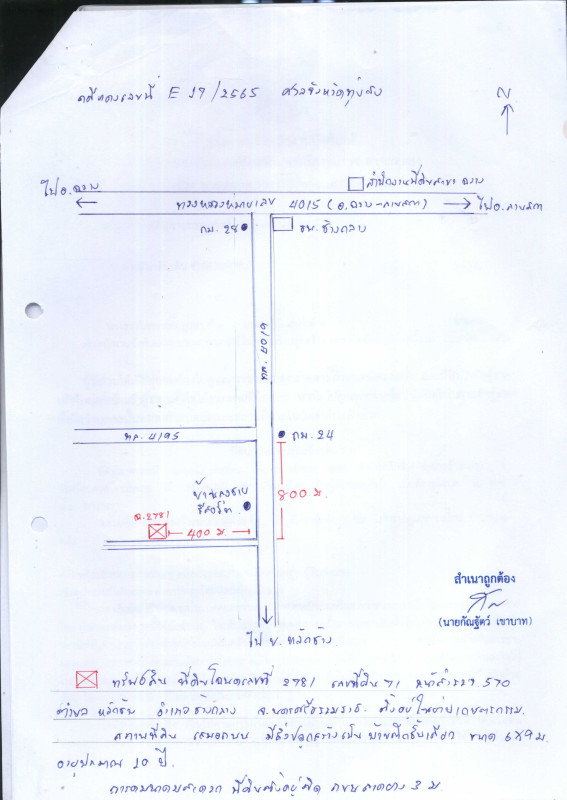 คดีแดงเลขที่ E 19/2565 ศาลจังหวัดทุ่งสง
N
สำนักงานที่ดินสาขา ฉวาง
ไป อ.ฉวาง
ทางหลวงหมายเลข 4015 (อ.ฉวาง-ลานสกา)
ไป อ.ลานสกา
กม. 28
รพ. ช้างกลาง
ทล. 4019
ทล. 4195
กม. 24
800 ม.
ฉ.2781
400 ม.
สำเนาถูกต้อง
(นายกัณฐัตว์ เขาบาท)
ไป บ. หลักช้าง
ทรัพย์สิน ที่ดินโฉนดเลขที่ 2781 เลขที่ดิน 71 หน้าสำรวจ 570
ตำบล หลักช้าง อำเภอช้างกลาง จ.นครศรีธรรมราช ตั้งอยู่ในย่านเกษตรกรรม.
สภาพที่ดิน เสมอถนน มีสิ่งปลูกสร้างเป็น บ้านตึกชั้นเดียว ขนาด 6x9 ม.
อายุประมาณ 10 ปี.
การคมนาคมสะดวก ที่ดินตั้งอยู่ติด ถนนลาดยาง 3 ม